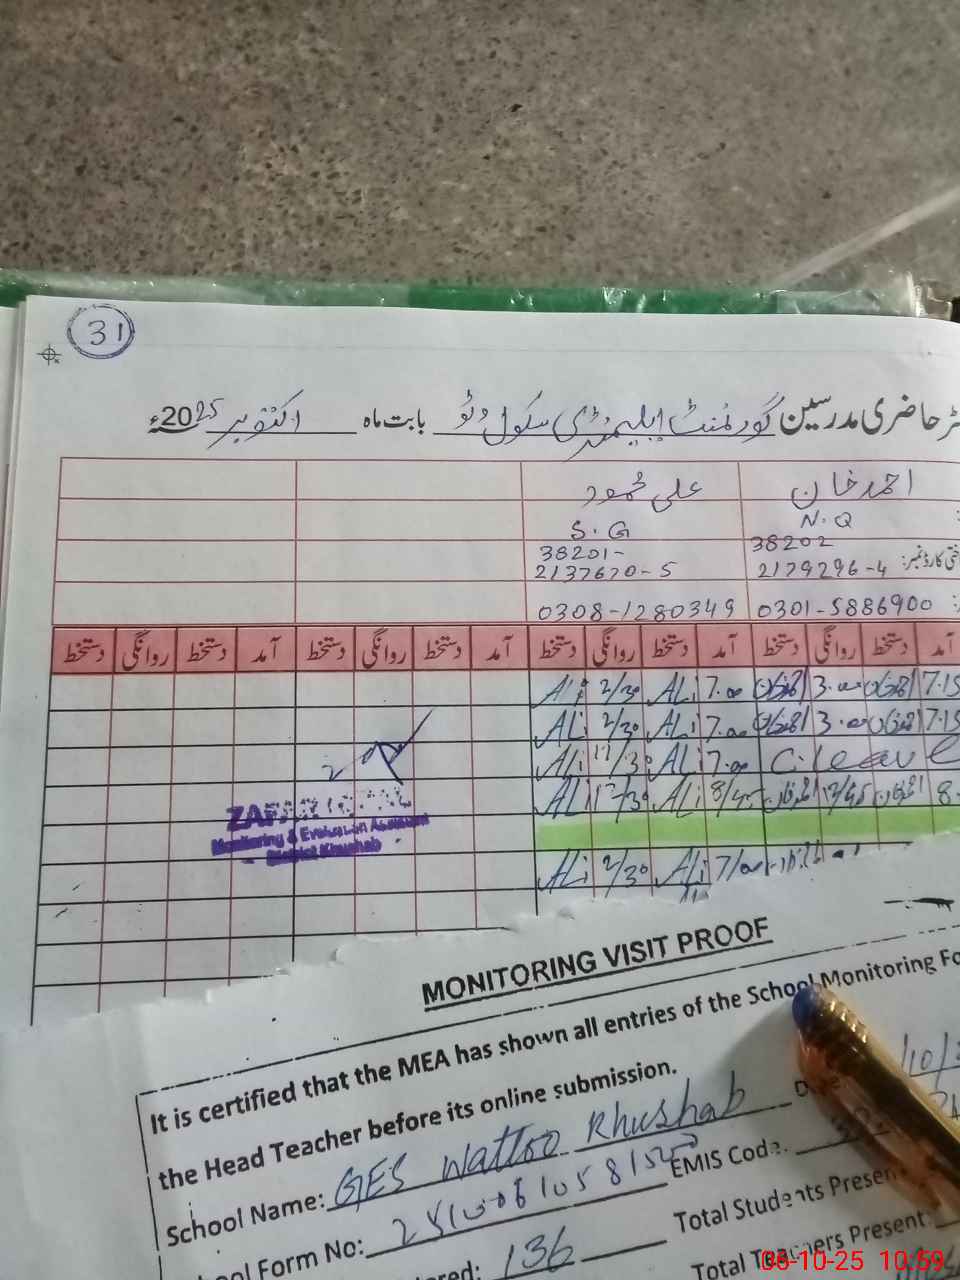 31
ٹر حاضری مدرسین گورنمنٹ ایلیمنٹری سکول وٹو بابت ماہ اکتوبر 2025ء
احمد خان علی محمود
N.Q S.G
38202 38201-
ختی کارڈ نمبر: 2179296-4 2137670-5
0301-5886900 0308-1280349
آمد دستخط روانگی دستخط آمد دستخط روانگی دستخط آمد دستخط روانگی دستخط آمد دستخط روانگی دستخط
7.15 احمد خان 3.00 احمد خان 7.00 ALi 2/30 ALi
7.15 احمد خان 3.00 احمد خان 7.00 ALi 2/30 ALi
C.leave 7.00 ALi 12/30 ALi
8 احمد خان 12/45 احمد خان 8/45 ALi 12/30 ALi
7/00 ALi 2/30 ALi
ZAFAR
Monitoring & Evaluation Assistant
District Khushab
MONITORING VISIT PROOF
It is certified that the MEA has shown all entries of the School Monitoring Fo
the Head Teacher before its online submission.
School Name: GES Wattoo Khushab Date
ool Form No: EMIS Code.
ered: 136 Total Students Presen
Total Teachers Present:
06-10-25 10:59